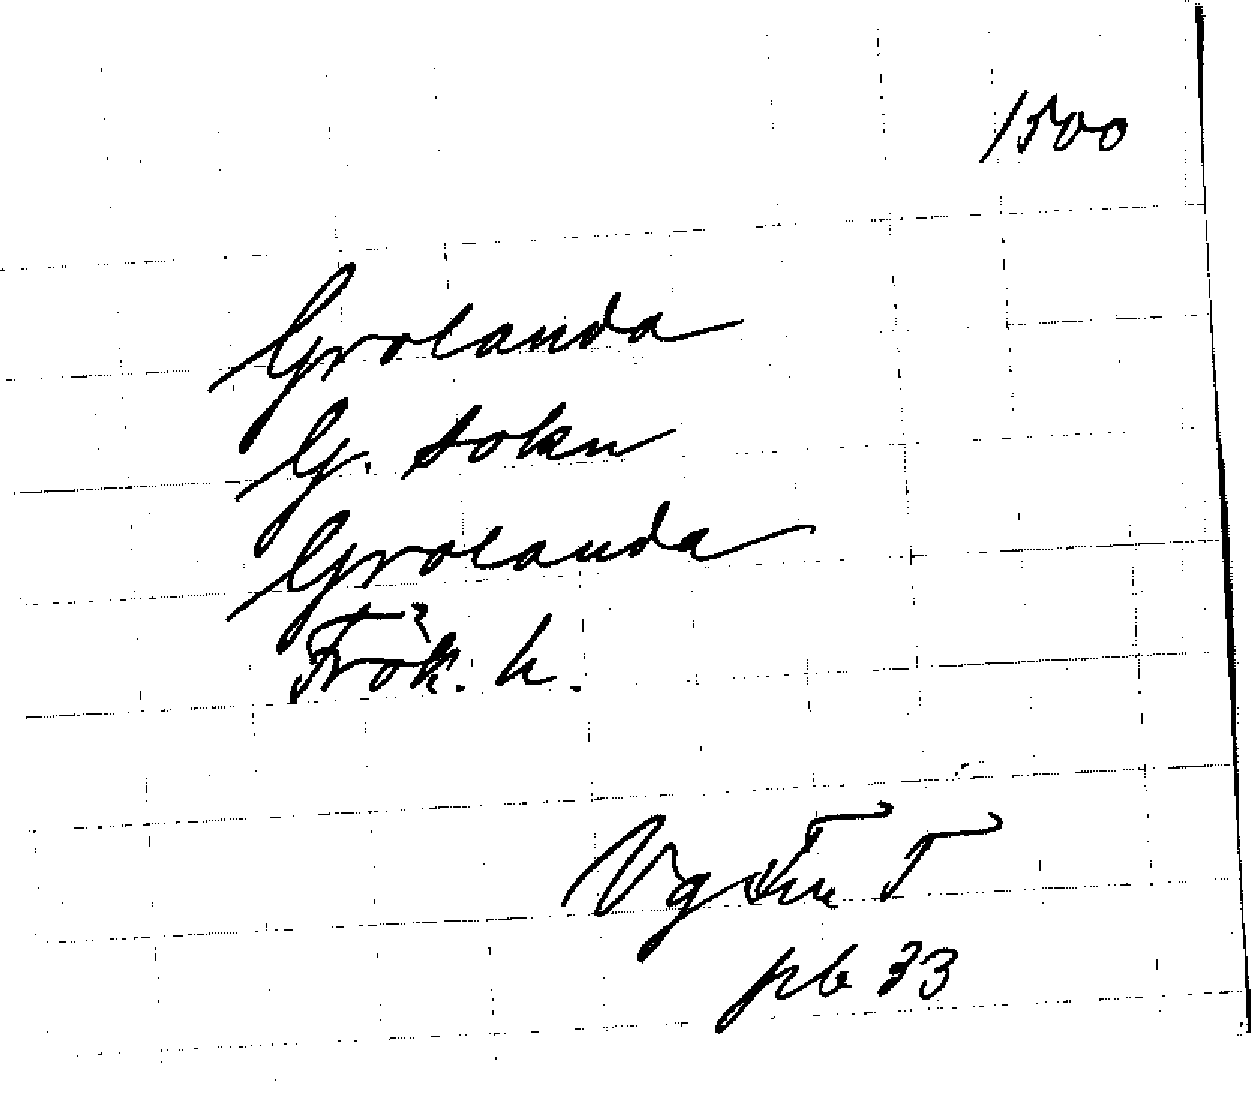 1500
Grolanda
G. sokn
Grolanda
Frök. h.
Vg Fr T
pb 33